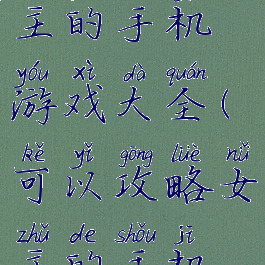 主的手机
yóu xì dà quán
游戏大全(
kě yǐ gōng lüè nǚ
可以攻略女
zhǔ de shǒu jī
主的手机